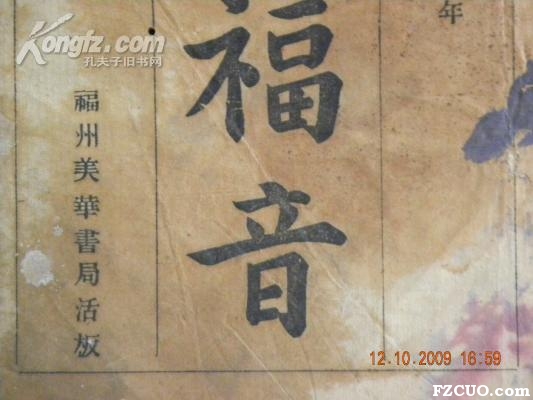 年
福音
福州美華書局活板
Kongfz.com
孔夫子旧书网
12.10.2009 16:59
FZCUO.com